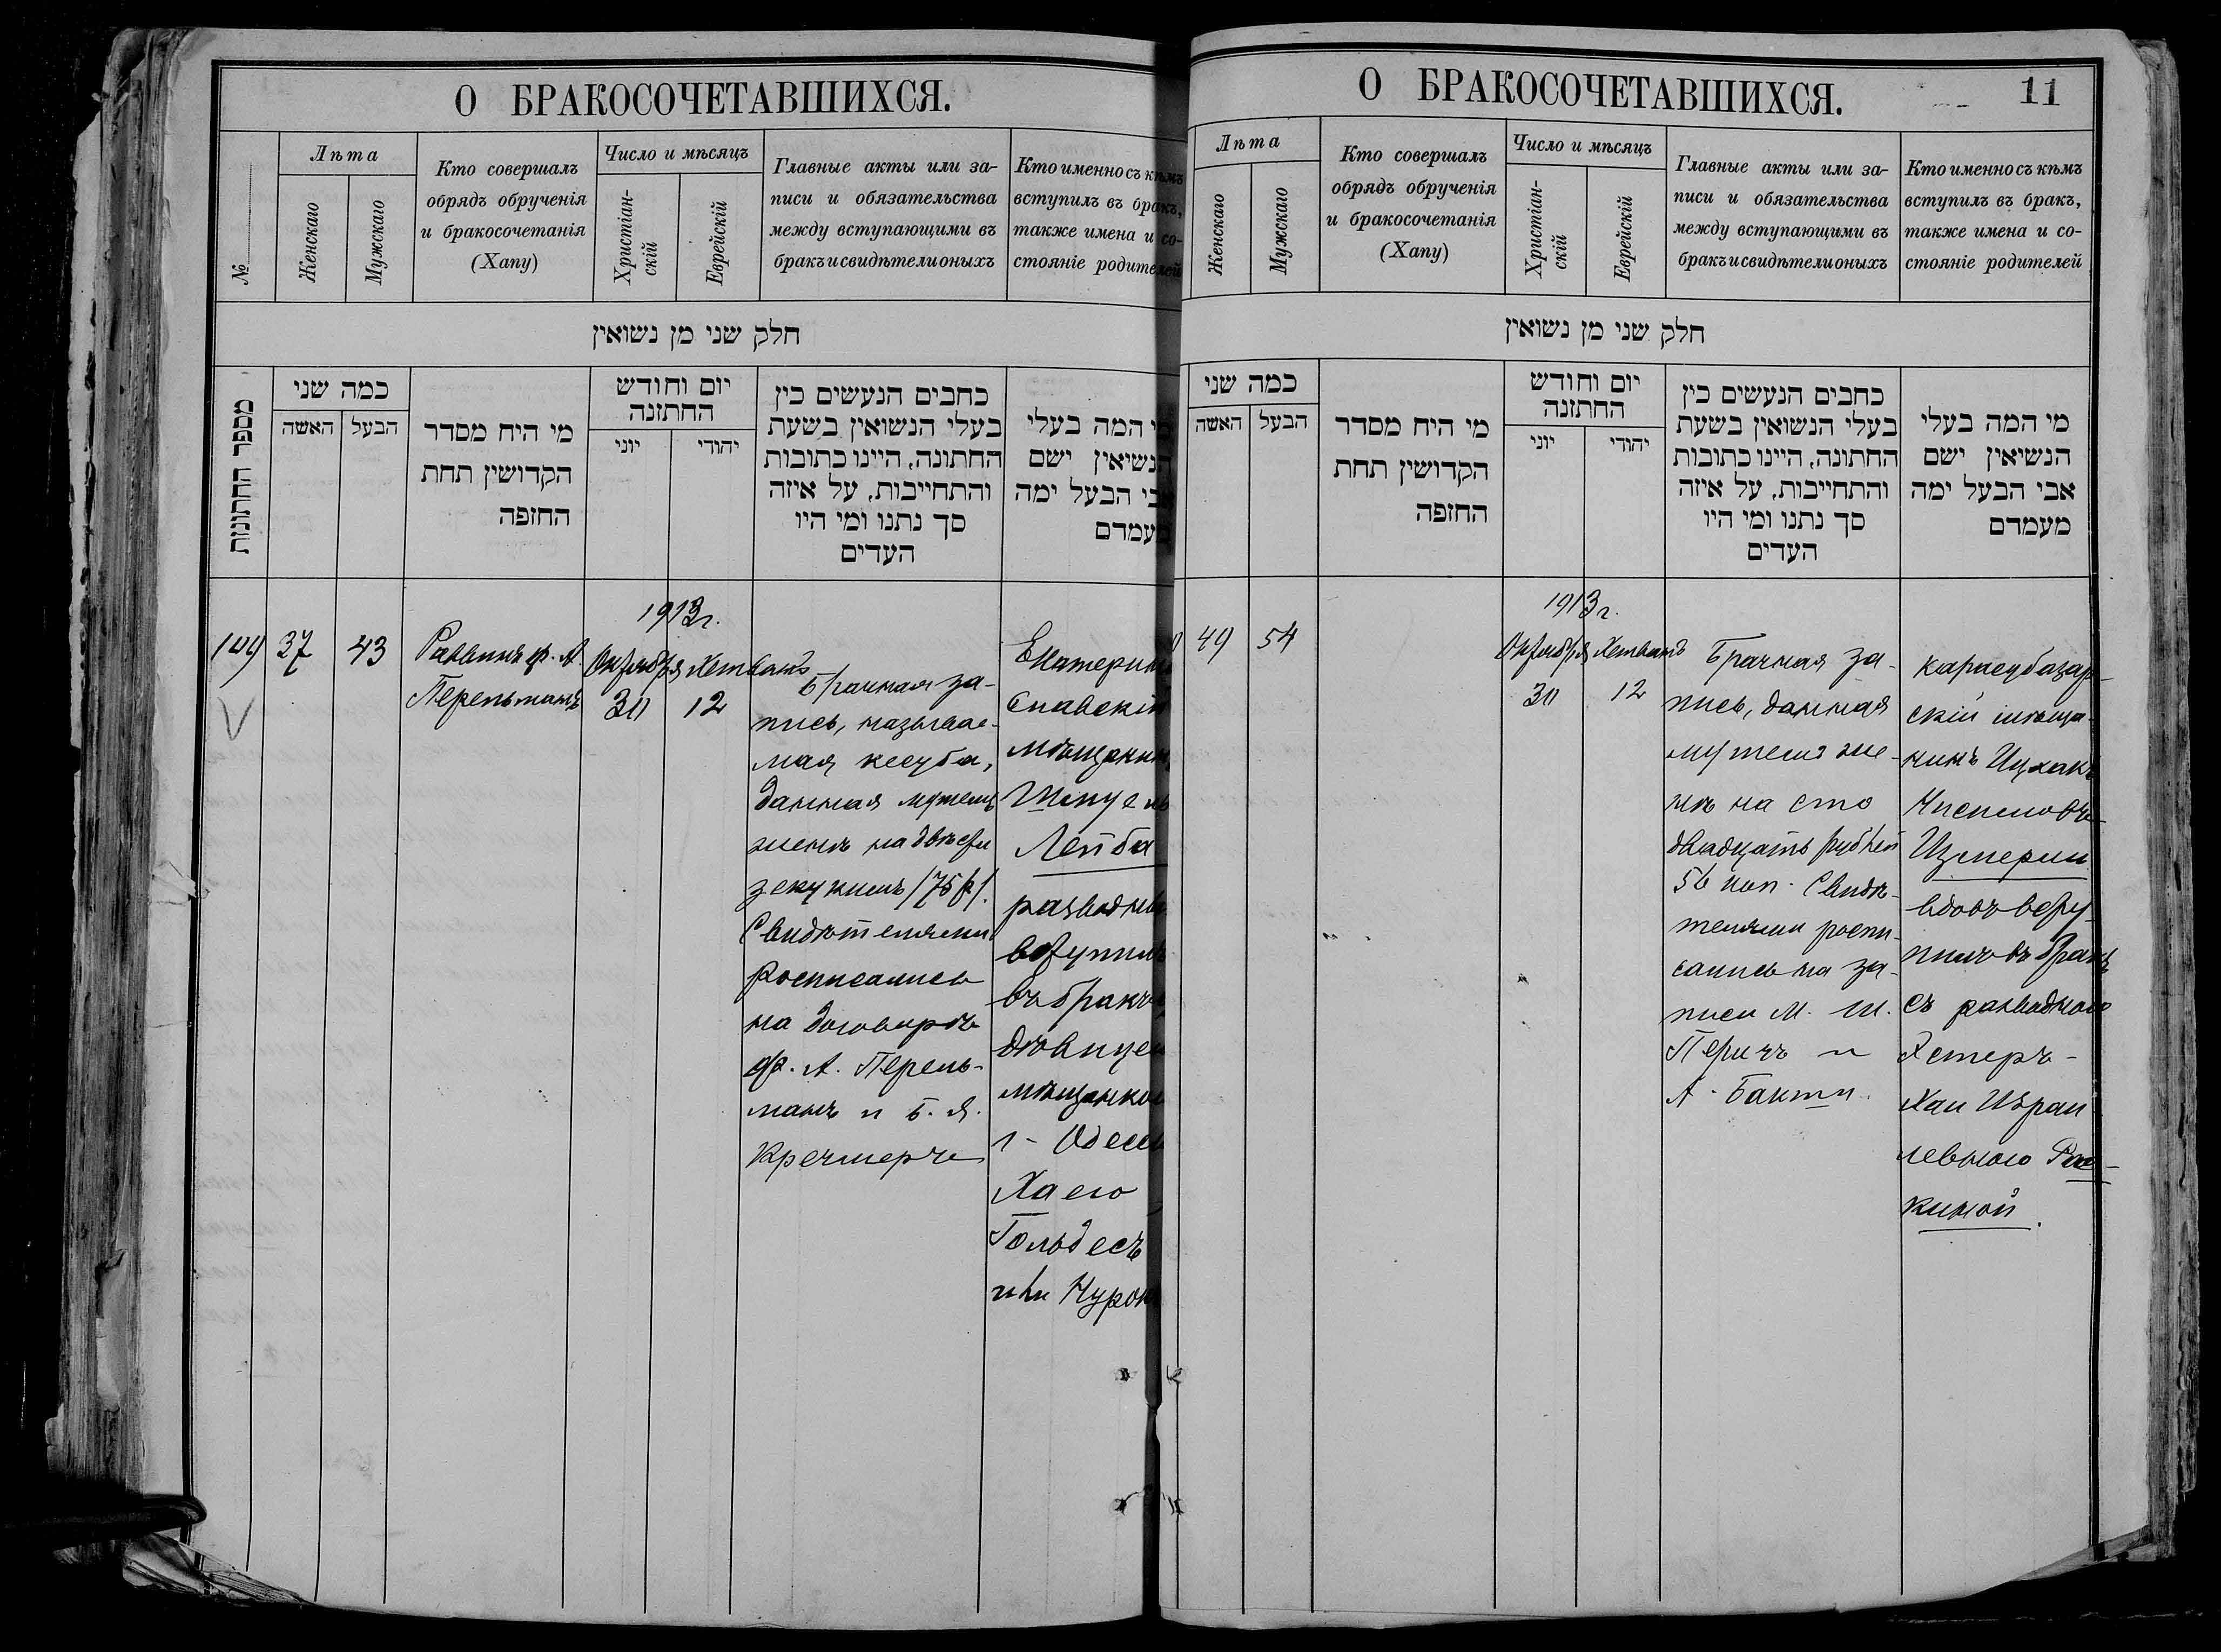 О БРАКОСОЧЕТАВШИХСЯ.
№
Лѣта
Женскаго
Мужскаго
Кто совершалъ
обрядъ обрученія
и бракосочетанія
(Хапу)
Число и мѣсяцъ
Христіан-
скій
Еврейскій
Главные акты или за-
писи и обязательства
между вступающими въ
бракъ и свидѣтели оныхъ
Кто именно съ кѣмъ
вступилъ въ бракъ,
также имена и со-
стояніе родителей
חלק שני מן נשואין
מספר החתונות
כמה שני
האשה
הבעל
מי היח מסדר
הקדושין תחת
החזפה
יום וחודש
החתזנה
יוני
יהודי
כחבים הנעשים כין
בעלי הנשואין בשעת
החתונה, היינו כתובות
והתחייבות, על איזה
סך נתנו ומי היו
העדים
מי המה בעלי
הנשיאין ישם
אבי הבעל ימה
מעמדם
109
37
43
Раввинъ Ф. А.
Перельманъ
1913 г.
Октября
30
Хетванъ
12
Брачная за-
пись, называе-
мая кесуба,
данная мужемъ
женѣ на двѣсти
зекукимъ (75 р).
Свидѣтелями
росписались
на договорѣ
Ф. А. Перель-
манъ и Б. Я.
Кремеръ
Екатерино
славскій
мѣщанинъ
Шмуель
Лейба
разведен
вступилъ
въ бракъ съ
дѣвицей
мѣщанкой
г. Одессы
Хаею
Гольдесъ
или Чурон
О БРАКОСОЧЕТАВШИХСЯ.
11
Лѣта
Женскаго
Мужскаго
Кто совершалъ
обрядъ обрученія
и бракосочетанія
(Хапу)
Число и мѣсяцъ
Христіан-
скій
Еврейскій
Главные акты или за-
писи и обязательства
между вступающими въ
бракъ и свидѣтели оныхъ
Кто именно съ кѣмъ
вступилъ въ бракъ,
также имена и со-
стояніе родителей
חלק שני מן נשואין
כמה שני
האשה
הבעל
מי היח מסדר
הקדושין תחת
החזפה
יום וחודש
החתזנה
יוני
יהודי
כחבים הנעשים כין
בעלי הנשואין בשעת
החתונה, היינו כתובות
והתחייבות, על איזה
סך נתנו ומי היו
העדים
מי המה בעלי
הנשיאין ישם
אבי הבעל ימה
מעמדם
49
54
1913 г.
Октября
30
Хетванъ
12
Брачная за-
пись, данная
мужемъ же-
нѣ на сто
двадцать рублей
56 коп. Свидѣ-
телями роспи-
сались на за-
писи М. Ш.
Перичъ и
А. Бакти
карасубазар-
скій мѣща-
нинъ Ицхакъ
Измерли
вдовъ всту-
пилъ въ бракъ
съ разводною
Эстеръ-
Хаи Израи
левною Рас-
киной.